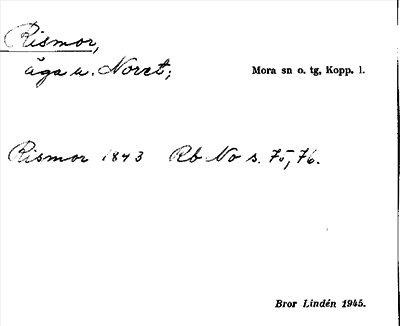 Rismor,
äga u. Noret;
Mora sn o. tg, Kopp. l.
Rismor 1843 Rb No s. 75, 76.
Bror Lindén 1945.